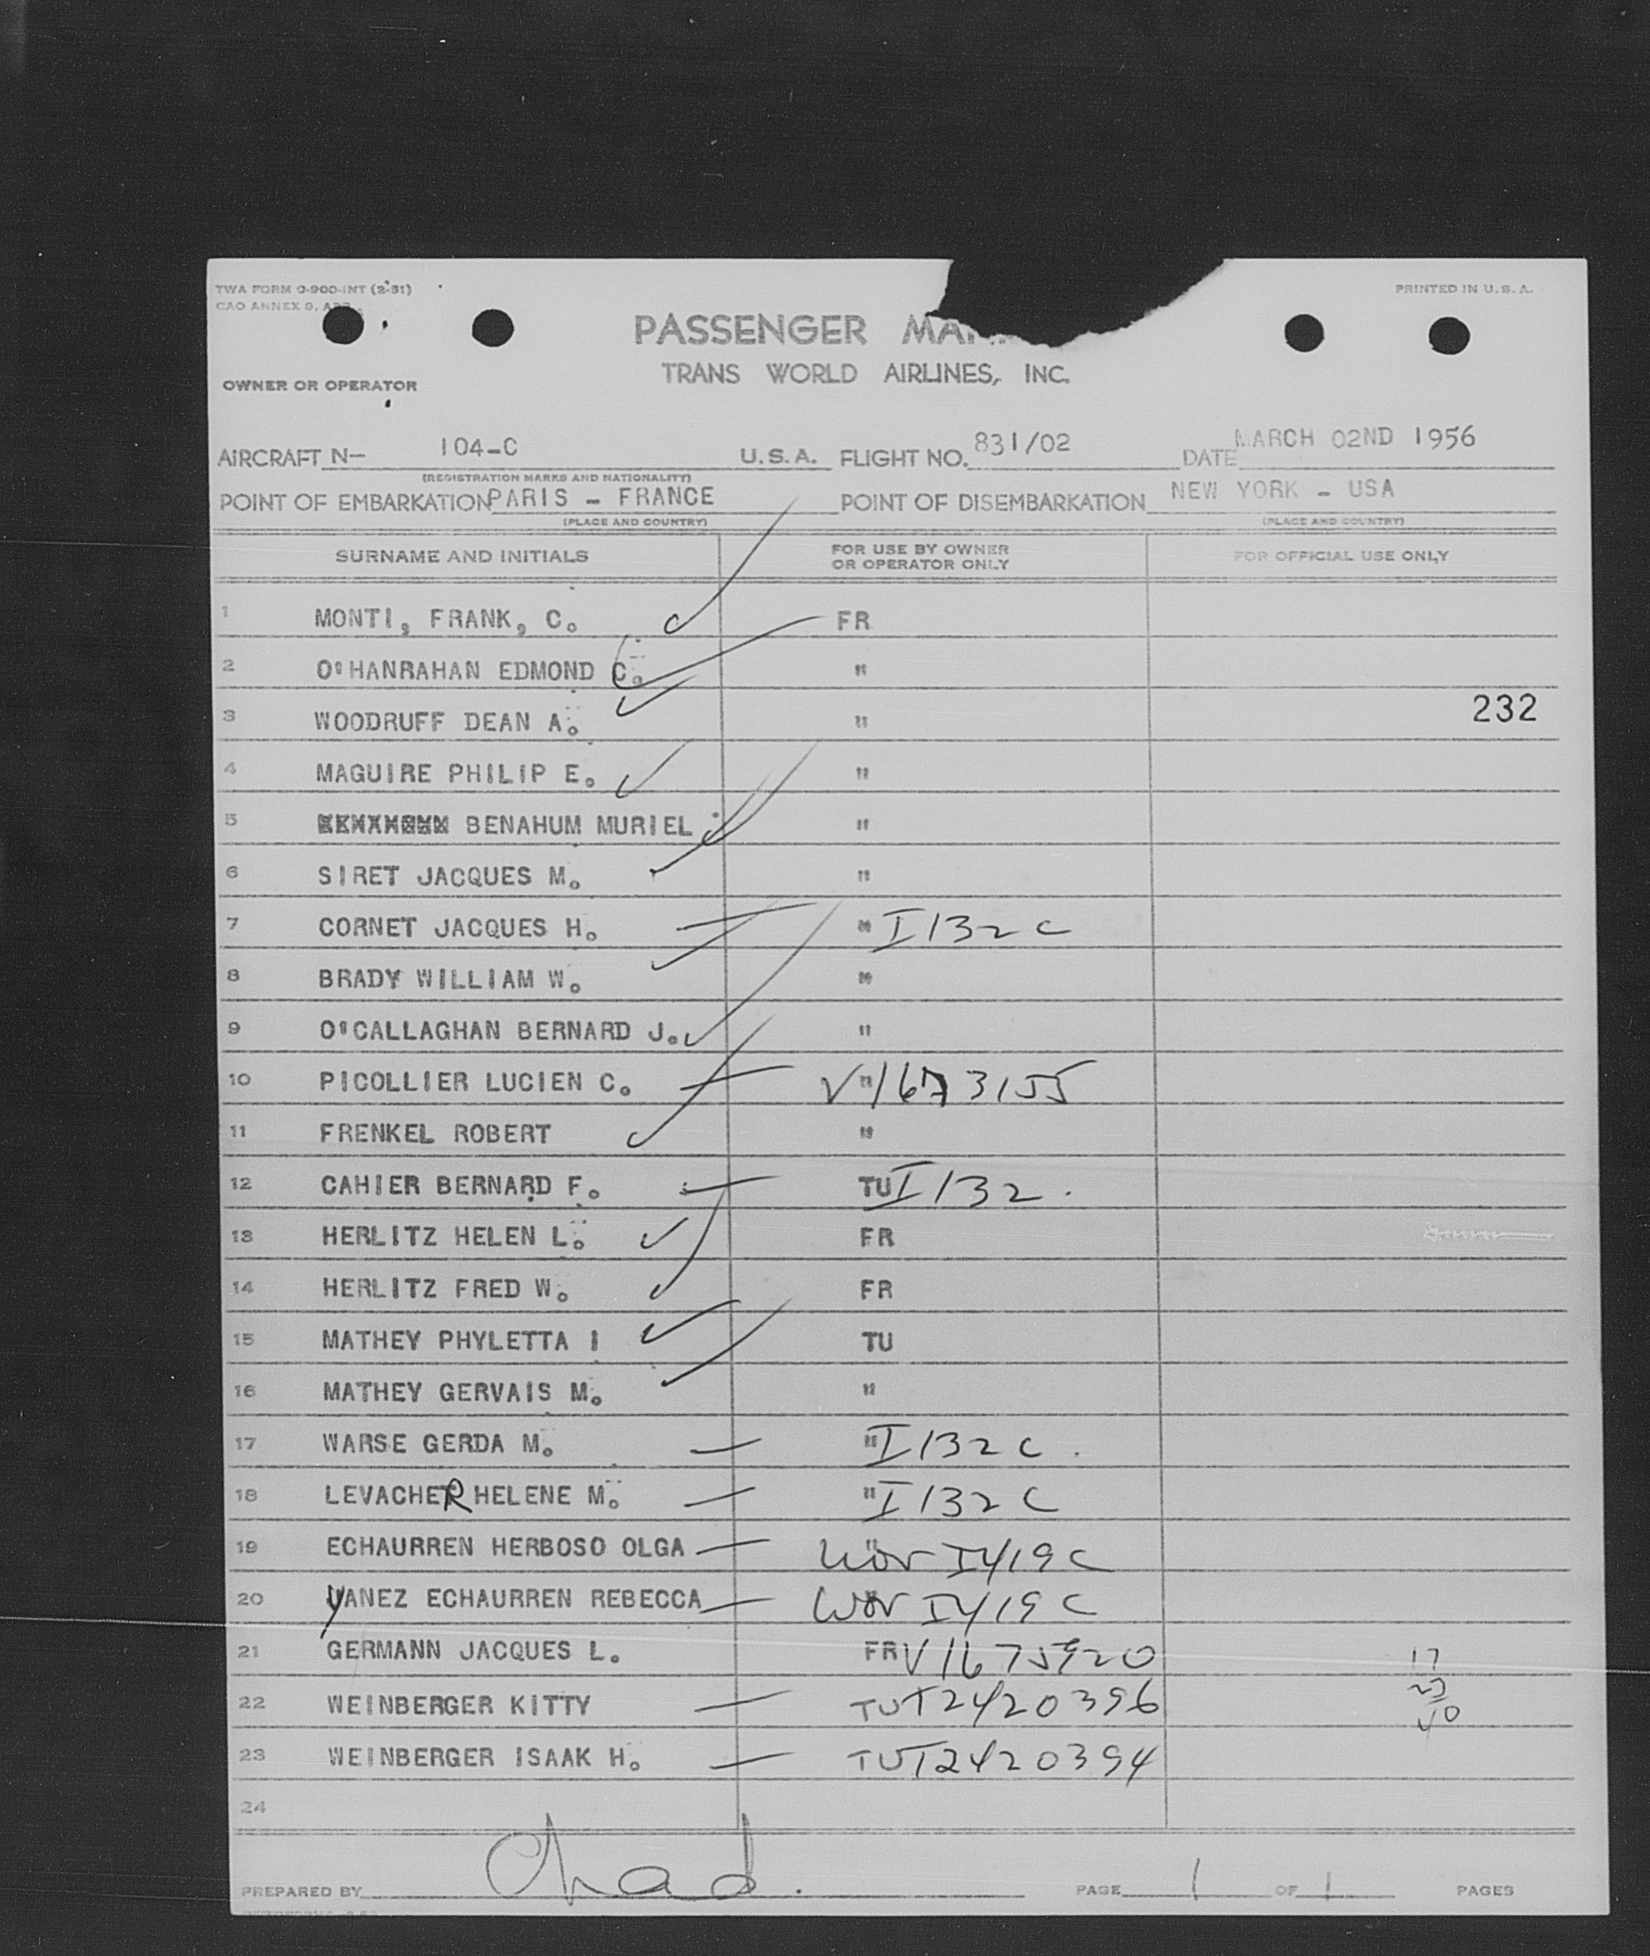 TWA FORM 0-900-INT (2-51)
CAO ANNEX 9,
PRINTED IN U.S.A.
PASSENGER
TRANS WORLD AIRLINES, INC.
OWNER OR OPERATOR
AIRCRAFT N- 104-C U.S.A. FLIGHT NO. 831/02 DATE MARCH 02ND 1956
(REGISTRATION MARKS AND NATIONALITY)
POINT OF EMBARKATION PARIS - FRANCE POINT OF DISEMBARKATION NEW YORK - USA
(PLACE AND COUNTRY) (PLACE AND COUNTRY)
SURNAME AND INITIALS FOR USE BY OWNER OR OPERATOR ONLY FOR OFFICIAL USE ONLY
1 MONTI, FRANK, C. FR
2 O'HANRAHAN EDMOND C. "
3 WOODRUFF DEAN A. " 232
4 MAGUIRE PHILIP E. "
5 BENAHUM MURIEL "
6 SIRET JACQUES M. "
7 CORNET JACQUES H. " I 132 C
8 BRADY WILLIAM W. "
9 O'CALLAGHAN BERNARD J. "
10 PICOLLIER LUCIEN C. " V 1673155
11 FRENKEL ROBERT "
12 CAHIER BERNARD F. TU I 132.
13 HERLITZ HELEN L. FR
14 HERLITZ FRED W. FR
15 MATHEY PHYLETTA I TU
16 MATHEY GERVAIS M. "
17 WARSE GERDA M. " I 132 C.
18 LEVACHER HELENE M. " I 132 C
19 ECHAURREN HERBOSO OLGA " I 419 C
20 YANEZ ECHAURREN REBECCA " I 419 C
21 GERMANN JACQUES L. FR V 1675920 17
22 WEINBERGER KITTY TU T2420396 23
40
23 WEINBERGER ISAAK H. TU T2420394
24
PREPARED BY PAGE 1 OF 1 PAGES